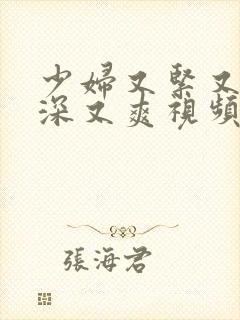 少婦又緊又
深又爽視頻
張海君